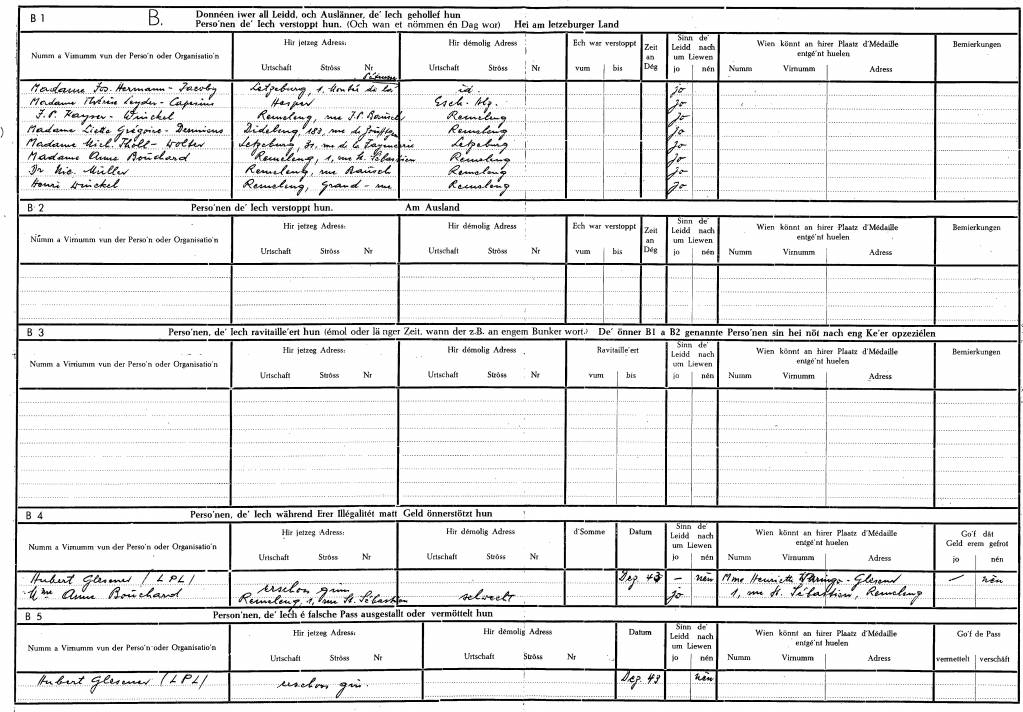 B 1 B. Donnéen iwer all Leidd, och Auslänner, de' Iech gehollef hun
Perso'nen de' Iech verstoppt hun. (Och wan et nömmen én Dag wor) Hei am letzeburger Land
Numm a Virnumm vun der Perso'n oder Organisatio'n Hir jetzeg Adress: Hir démolig Adress Ech war verstoppt Zeit an Dég Sinn de' Leidd nach um Liewen Wien könnt an hirer Plaatz d'Médaille entgé'nt huelen Bemierkungen
Urtschaft Ströss Nr Urtschaft Ströss Nr vum bis jo nén Numm Virnumm Adress
Madame Jos. Hermann - Jacoby Letzeburg, 1, Montée de la Pétrusse id. jo
Madame Thérèse Leyder - Caprius Hesper Esch. Alg. jo
J. P. Kayser - Winckel Remeleng, rue J. P. Bausch Remeleng jo
Madame Liette Grégoire - Dideleng, 183, rue de Remeleng jo
Madame Mich. Tholl - Wolter Letzeburg, 31, rue de la Letzeburg jo
Madame Anne Bouchard Remeleng, 1, rue St. Sébastien Remeleng jo
Dr Nic. Müller Remeleng, rue Bausch Remeleng jo
Henri Winckel Remeleng, Grand - rue Remeleng jo
B 2 Perso'nen de' Iech verstoppt hun. Am Ausland
Numm a Virnumm vun der Perso'n oder Organisatio'n Hir jetzeg Adress: Hir démolig Adress Ech war verstoppt Zeit an Dég Sinn de' Leidd nach um Liewen Wien könnt an hirer Plaatz d'Médaille entgé'nt huelen Bemierkungen
Urtschaft Ströss Nr Urtschaft Ströss Nr vum bis jo nén Numm Virnumm Adress
B 3 Perso'nen, de' Iech ravitaille'ert hun (émol oder lä nger Zeit, wann der z.B. an engem Bunker wort.) De' önner B1 a B2 genannte Perso'nen sin hei nöt nach eng Ke'er opzeziélen
Numm a Virnumm vun der Perso'n oder Organisatio'n Hir jetzeg Adress: Hir démolig Adress Ravitaille'ert Sinn de' Leidd nach um Liewen Wien könnt an hirer Plaatz d'Médaille entgé'nt huelen Bemierkungen
Urtschaft Ströss Nr Urtschaft Ströss Nr vum bis jo nén Numm Virnumm Adress
B 4 Perso'nen, de' Iech während Erer Illégalitét matt Geld önnerstötzt hun
Numm a Virnumm vun der Perso'n oder Organisatio'n Hir jetzeg Adress: Hir démolig Adress d'Somme Datum Sinn de' Leidd nach um Liewen Wien könnt an hirer Plaatz d'Médaille entgé'nt huelen Go'f dât Geld erem gefrot
Urtschaft Ströss Nr Urtschaft Ströss Nr jo nén Numm Virnumm Adress jo nén
Hubert Glesener (LPL) erschoss gin Dez. 43 — nén Mme Henriette Waringo - Glesener — nén
Mme Anne Bouchard Remeleng, 1, rue St. Sébastien selwecht jo 1, rue St. Sébastien, Remeleng
B 5 Person'nen, de' Iech é falsche Pass ausgestallt oder vermöttelt hun
Numm a Virnumm vun der Perso'n oder Organisatio'n Hir jetzeg Adress: Hir démolig Adress Datum Sinn de' Leidd nach um Liewen Wien könnt an hirer Plaatz d'Médaille entgé'nt huelen Go'f de Pass
Urtschaft Ströss Nr Urtschaft Ströss Nr jo nén Numm Virnumm Adress vermettelt verschâft
Hubert Glesener (LPL) erschoss gin. Dez. 43 nén